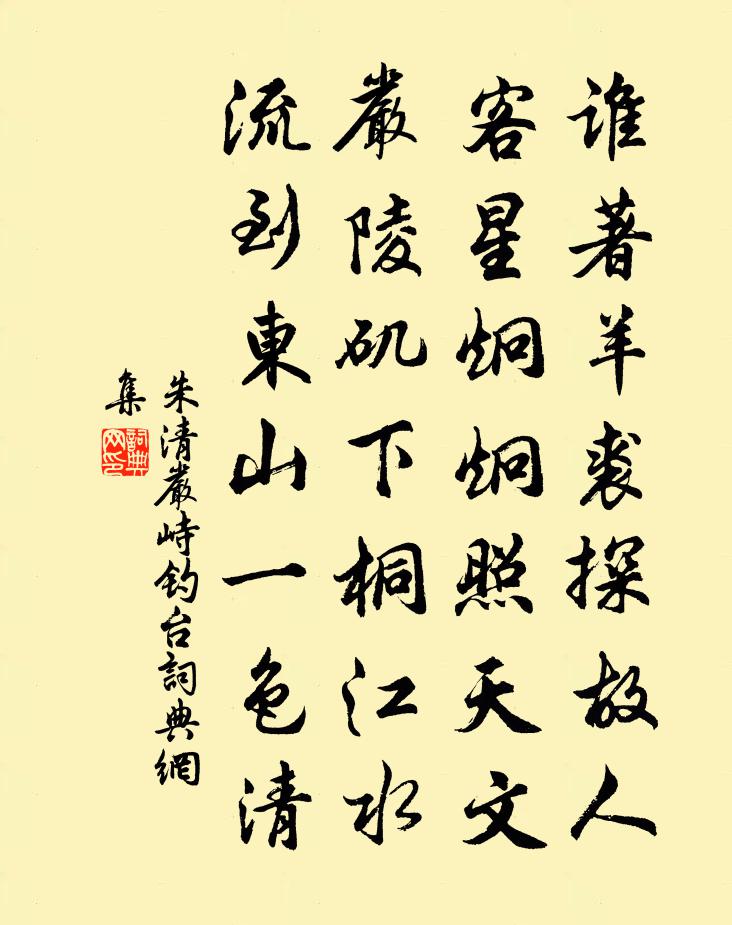 誰著羊裘探故人
客星炯炯照天文
嚴陵矶下桐江水
流到東山一色清
朱清嚴峙钓台詞典網
集
詞典网印